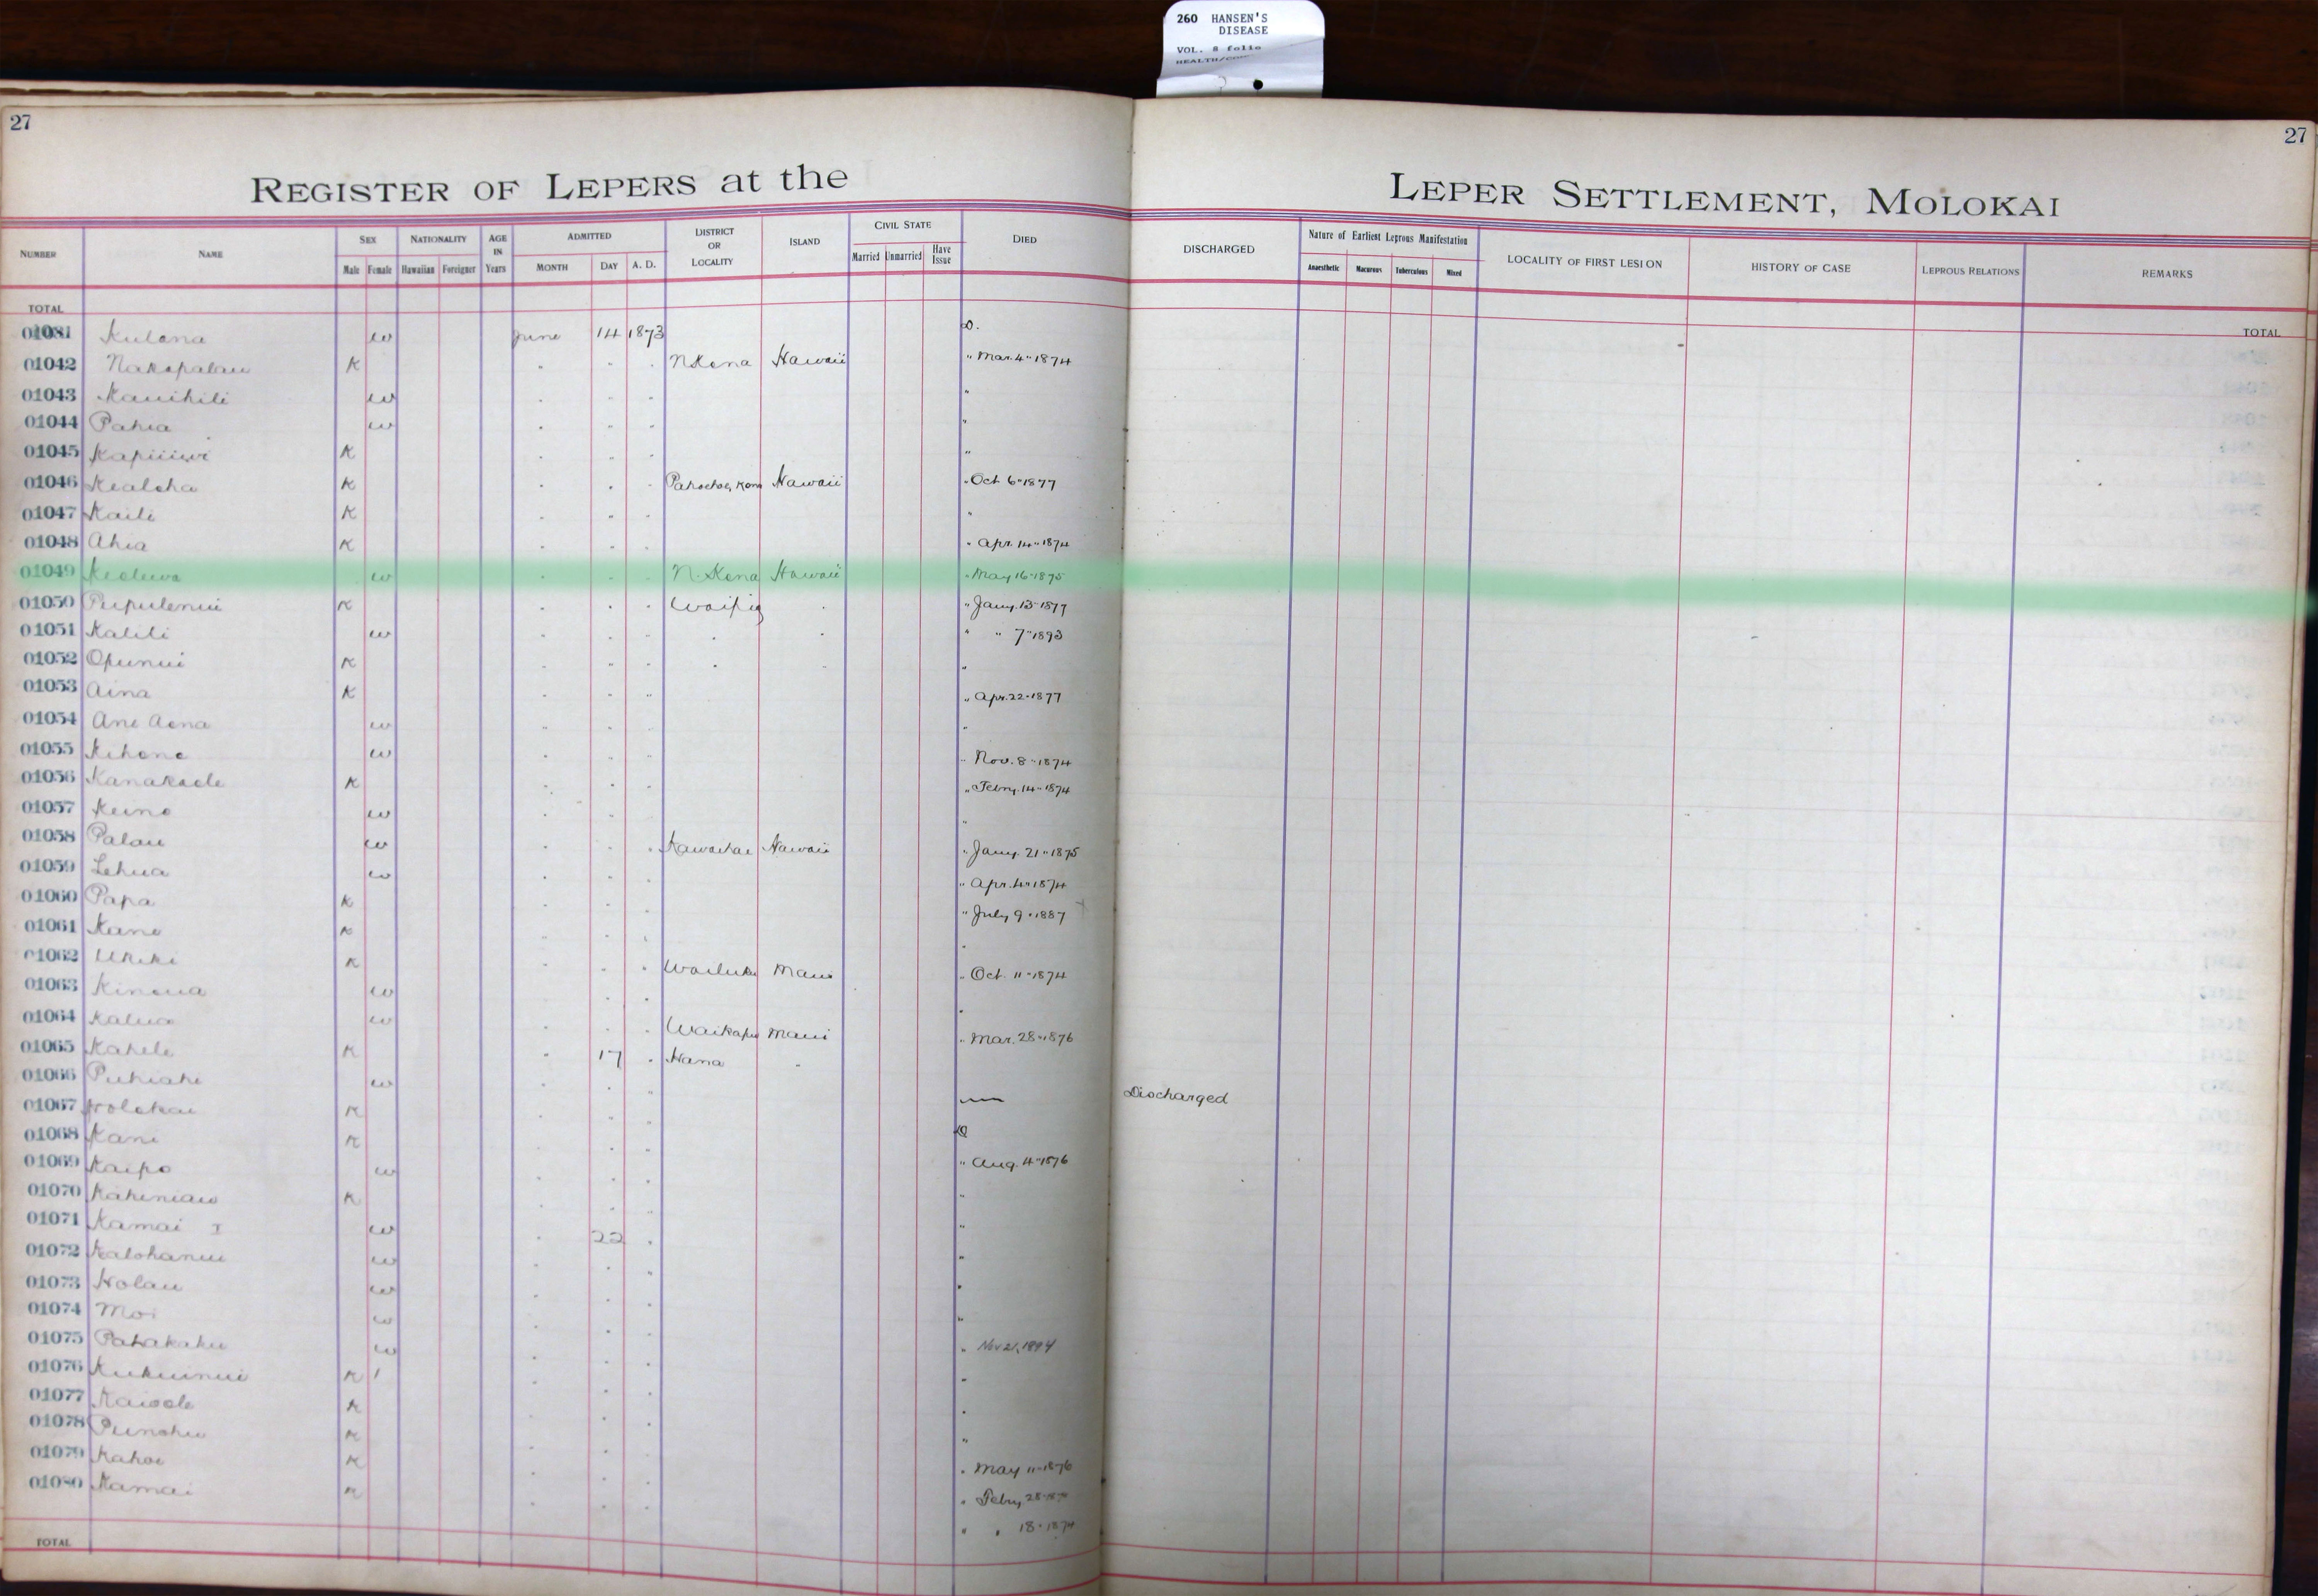 260 HANSEN'S
DISEASE
VOL. 8 folio
27
27
REGISTER OF LEPERS at the LEPER SETTLEMENT, MOLOKAI
NUMBER NAME SEX NATIONALITY AGE IN YEARS ADMITTED DISTRICT OR LOCALITY ISLAND CIVIL STATE DIED DISCHARGED Nature of Earliest Leprous Manifestation LOCALITY OF FIRST LESION HISTORY OF CASE LEPROUS RELATIONS REMARKS
Male Female Hawaiian Foreigner MONTH DAY A. D. Married Unmarried Have Issue Anaesthetic Macurous Tuberculous Mixed
TOTAL TOTAL
Kulana w June 14 1873 D.
01042 Nakopalau K " " " N Kona Hawaii " Mar. 4" 1874
01043 Kauihili w " " " "
01044 Pahia w " " " "
01045 K " " " "
01046 Kealoha K " " " Hawaii " Oct 6" 1877
01047 Kaili K " " " "
01048 Ahia K " " " " Apr. 14" 1874
01049 w " " " N. Kona Hawaii " May 16" 1875
01050 Pupulenui K " " " Waipio " " Jany. 13" 1877
01051 Kalili w " " " " " " " 7" 1893
01052 Opunui K " " " " " "
01053 Aina K " " " " Apr. 22" 1877
01054 Ane Aona w " " " "
01055 Kihone w " " " " Nov. 8" 1874
01056 Kanakaole K " " " " Febry. 14" 1874
01057 Keino w " " " "
01058 Palau w " " " Kawaihae Hawaii " Jany. 21" 1875
01059 Lehua w " " " " Apr. 4" 1874
01060 Papa K " " " " July 9" 1887
01061 Kane K " " " "
01062 Ukeke K " " " Wailuku Maui " Oct. 11" 1874
01063 Kinoua w " " " "
01064 Kalua w " " " Waikapu Maui " Mar. 28" 1876
01065 Kahele K " 17 " Hana "
01066 Puhiahi w " " " — Discharged
01067 Holokai K " " " D
01068 Kani K " " " " Aug. 4" 1876
01069 Kaipo w " " " "
01070 Kaheniau K " " " "
01071 Kamai I w " 22 " "
01072 Kalohanui w " " " "
01073 Holau w " " " "
01074 Moi w " " " " Nov 21, 1894
01075 Pahakaku w " " " "
01076 Kukuinui K " " " "
01077 Kaiaole K " " " "
01078 Punohu K " " " " May 11" 1876
01079 Kahoe K " " " " Febry 28"
01080 Kamai K " " " " " 18" 1874
TOTAL